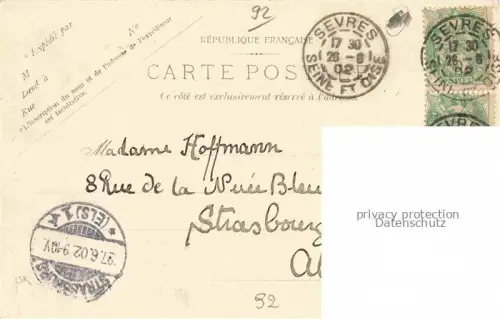 92
SEVRES
17 30
26 - 6
02
SEINE ET OISE
SEVRES
17 30
26 - 6
RÉPUBLIQUE FRANÇAISE
CARTE POS
Ce côté est exclusivement réservé à l'adresse.
Expédié par
N°
M
Demt à
Rue
L'inscription du nom et de l'adresse de l'expéditeur
est facultative.
SEVRES
Madame Hoffmann
8 Rue de la Nuée Bleu
Strasbourg
Al
privacy protection
Datenschutz
* (ELS.) 1 A
27.6.02.9-10V.
STRASSBURG
92